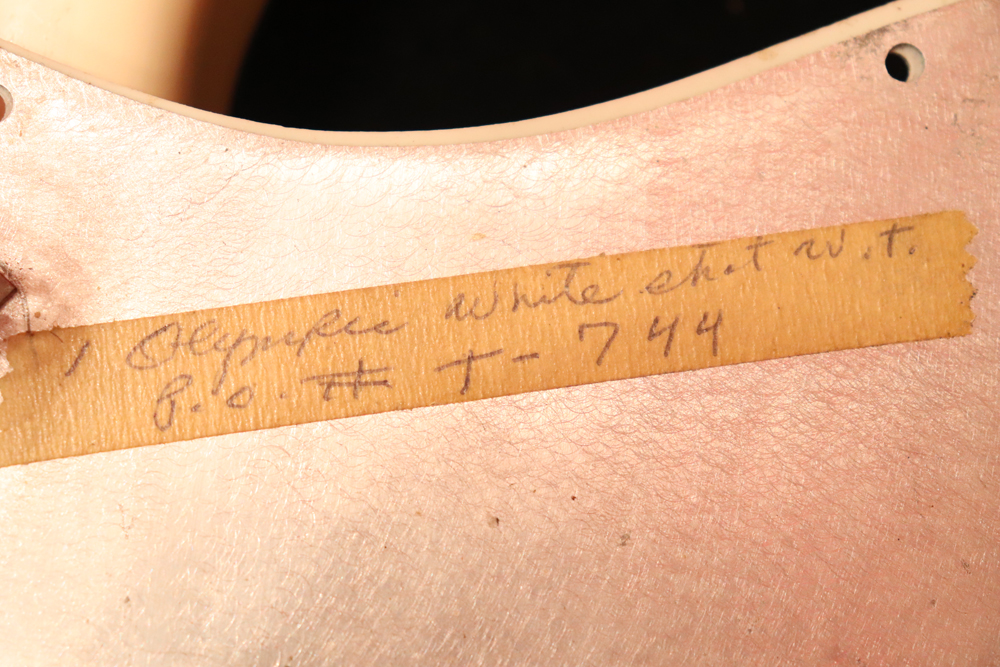 1 Olympic white shot w.t.
P.O. # T-744